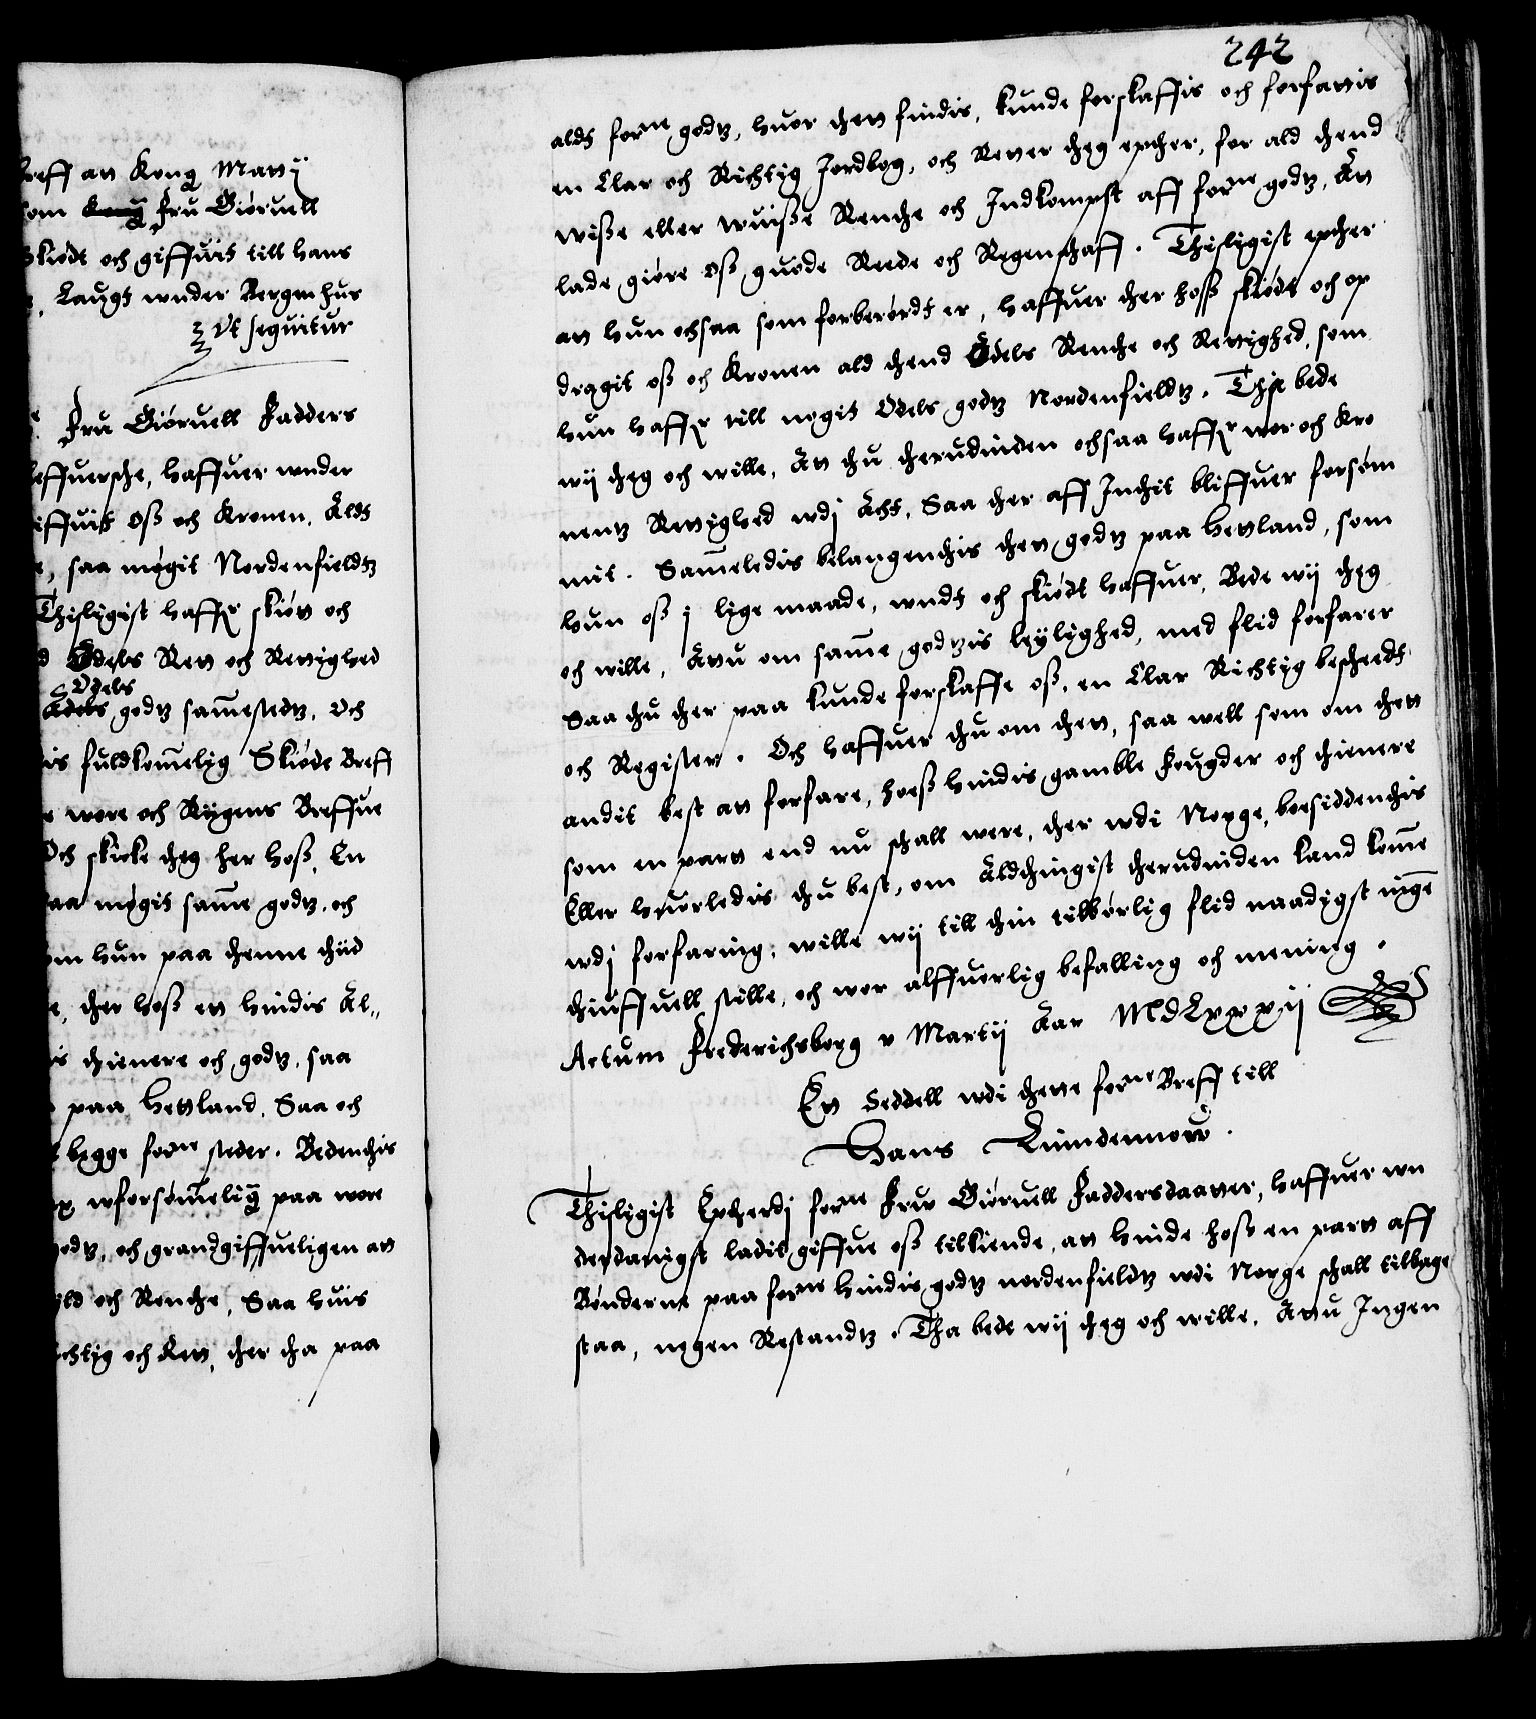 breff att Kong Matt ij
som Fru Giøruell
Skiødt och giffuit till hans
Laugt wnder Bergenhus
Vt sequitur
Fru Giøruell Fadders
haffuer wnder
giffuit oß och Kronen. Aldt
saa møgit Nordenfieldtz
Thisligist haffr skiøtt och
Odels Rett och Rettighed
Odels
godtz sam̄estedtz. Och
fuldkom̄elig Skiøde Breff
wore och Rigens Breffue
Och skicke theg her hoß, En
saa møgit sam̄e godtz, och
som hun paa thenne thiid
ther hoß en hindis Al⸗
thienere och godtz, saa
paa Hettland. Saa och
begge forne steder. Bedendis
wforsøm̄eligt paa wore
godtz, och grandgiffueligen at
och Renthe, Saa huis
Richtig och Ret, ther tha paa
242
aldt forne godtz, huor thet findis, kunde forskaffis och forfattis
en Clar och Richtig Jordbog, och Retter theg epther, for ald thend
wiße eller wuiße Renthe och Indkompst aff forne godtz, Att
lade giøre oß guode Rede och Regenschaff. Thisligist epther
at hun ochsaa som forberørdt er, haffuer ther hoß skiødt och op
dragit oß och Kronen ald thend Odels Renthe och Rettighed, som
hun haffr till nogit Odels godtz Nordenfieldtz. Tha bede
wij theg och wille, At thu therudinden ochsaa haffr wor och Kro
nens Rettighed wdj Acht, Saa ther aff Inthit bliffuer forsøm
mit. Sam̄eledis belangendis thet godtz paa Hettland, som
hun oß j lige maade, wndt och skiødt haffuer, Bede wij theg
och wille, Attu om sam̄e godtzis leylighed, med flid forfarer
Saa thu ther paa kunde forskaffe oß, en Clar Richtig bescheedt
och Register. Och haffuer thu om thet, saa well som om thet
andit best at forfare, hoeß hindis gamble Fougder och thienere
som en part end nu schall were, ther wdi Norge, boesiddendis
Eller huorledis thu best, om Aldthingist therudinden kand kom̄e
wdj forfaring, wille wij till thin tilbørlig flid naadigst ingē
thiuffuell stille, och wor alffuerlig befalling och mening.
Actum Frederichsborg v Martij Aar MdLxxxij
En Seddell wdi thette forne Breff till
Hans Lindennow.
Thisligist Eptherdj forne Frw Giøruell Faddersdaatter, haffuer wn
derdanigst ladit giffue oß tilkiende, at hinde hoß en part aff
Bønderne paa forne hindis godtz nordenfieldtz wdi Norge schall tilbage
staa, nogen Restandtz. Tha bede wij theg och wille, Attu Ingen